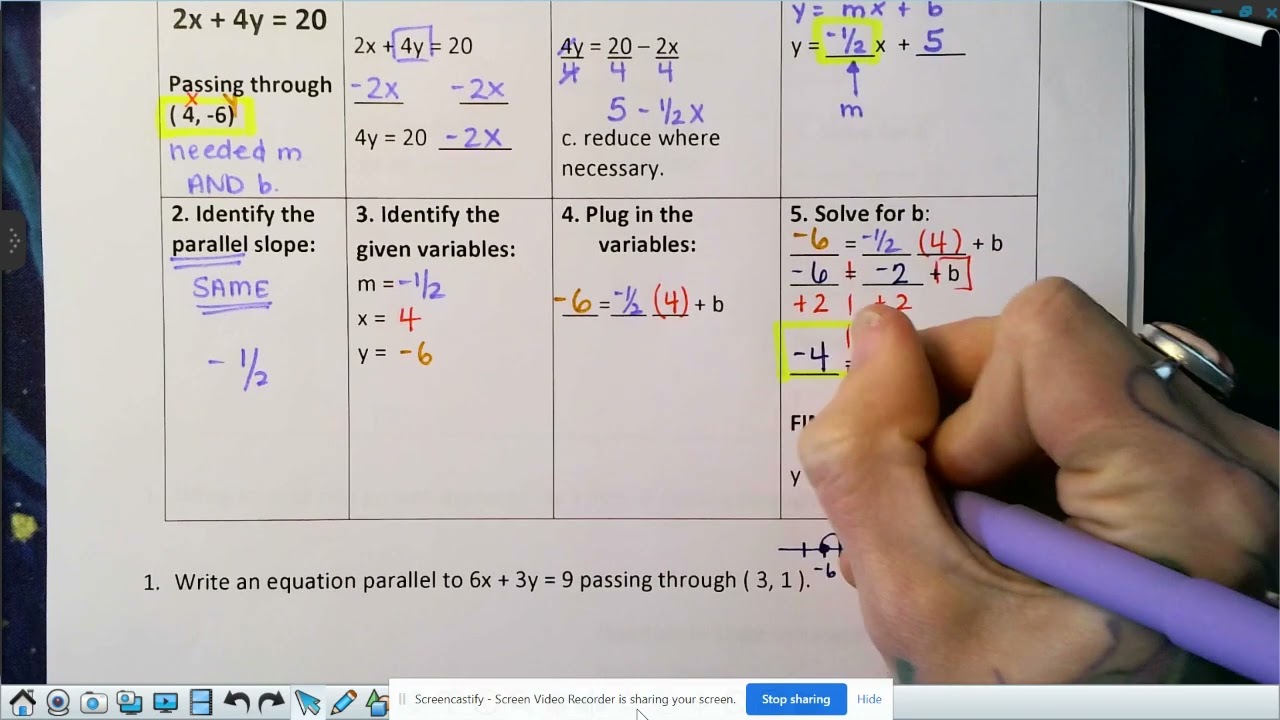 2x + 4y = 20
Passing through
x y
( 4, -6)
needed m
AND b.
2x + 4y = 20
-2x -2x
4y = 20 -2x
4y = 20 – 2x
4 4 4
5 - 1/2 x
c. reduce where
necessary.
y = mx + b
y = -1/2 x + 5
m
2. Identify the
parallel slope:
SAME
- 1/2
3. Identify the
given variables:
m = -1/2
x = 4
y = -6
4. Plug in the
variables:
-6 = -1/2 (4) + b
5. Solve for b:
-6 = -1/2 (4) + b
-6 = -2 + b
+2 +2
-4 =
y
-6
1. Write an equation parallel to 6x + 3y = 9 passing through ( 3, 1 ).
Screencastify - Screen Video Recorder is sharing your screen.
Stop sharing
Hide